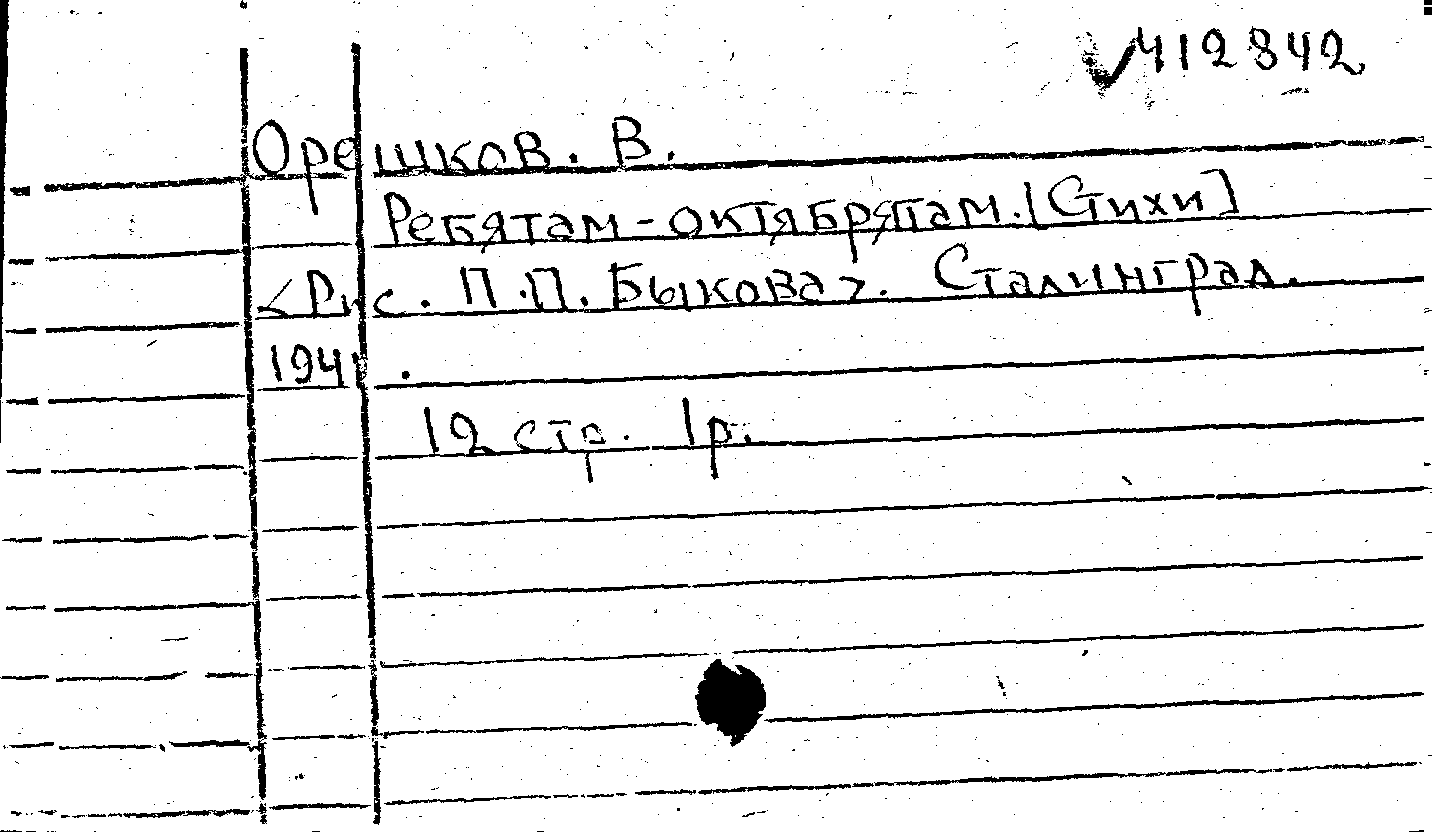 412842
Орешков. В.
Ребятам-октябрятам. [Стихи]
<Рис. П.П. Быкова>. Сталинград.
1941.
12 стр. 1р.